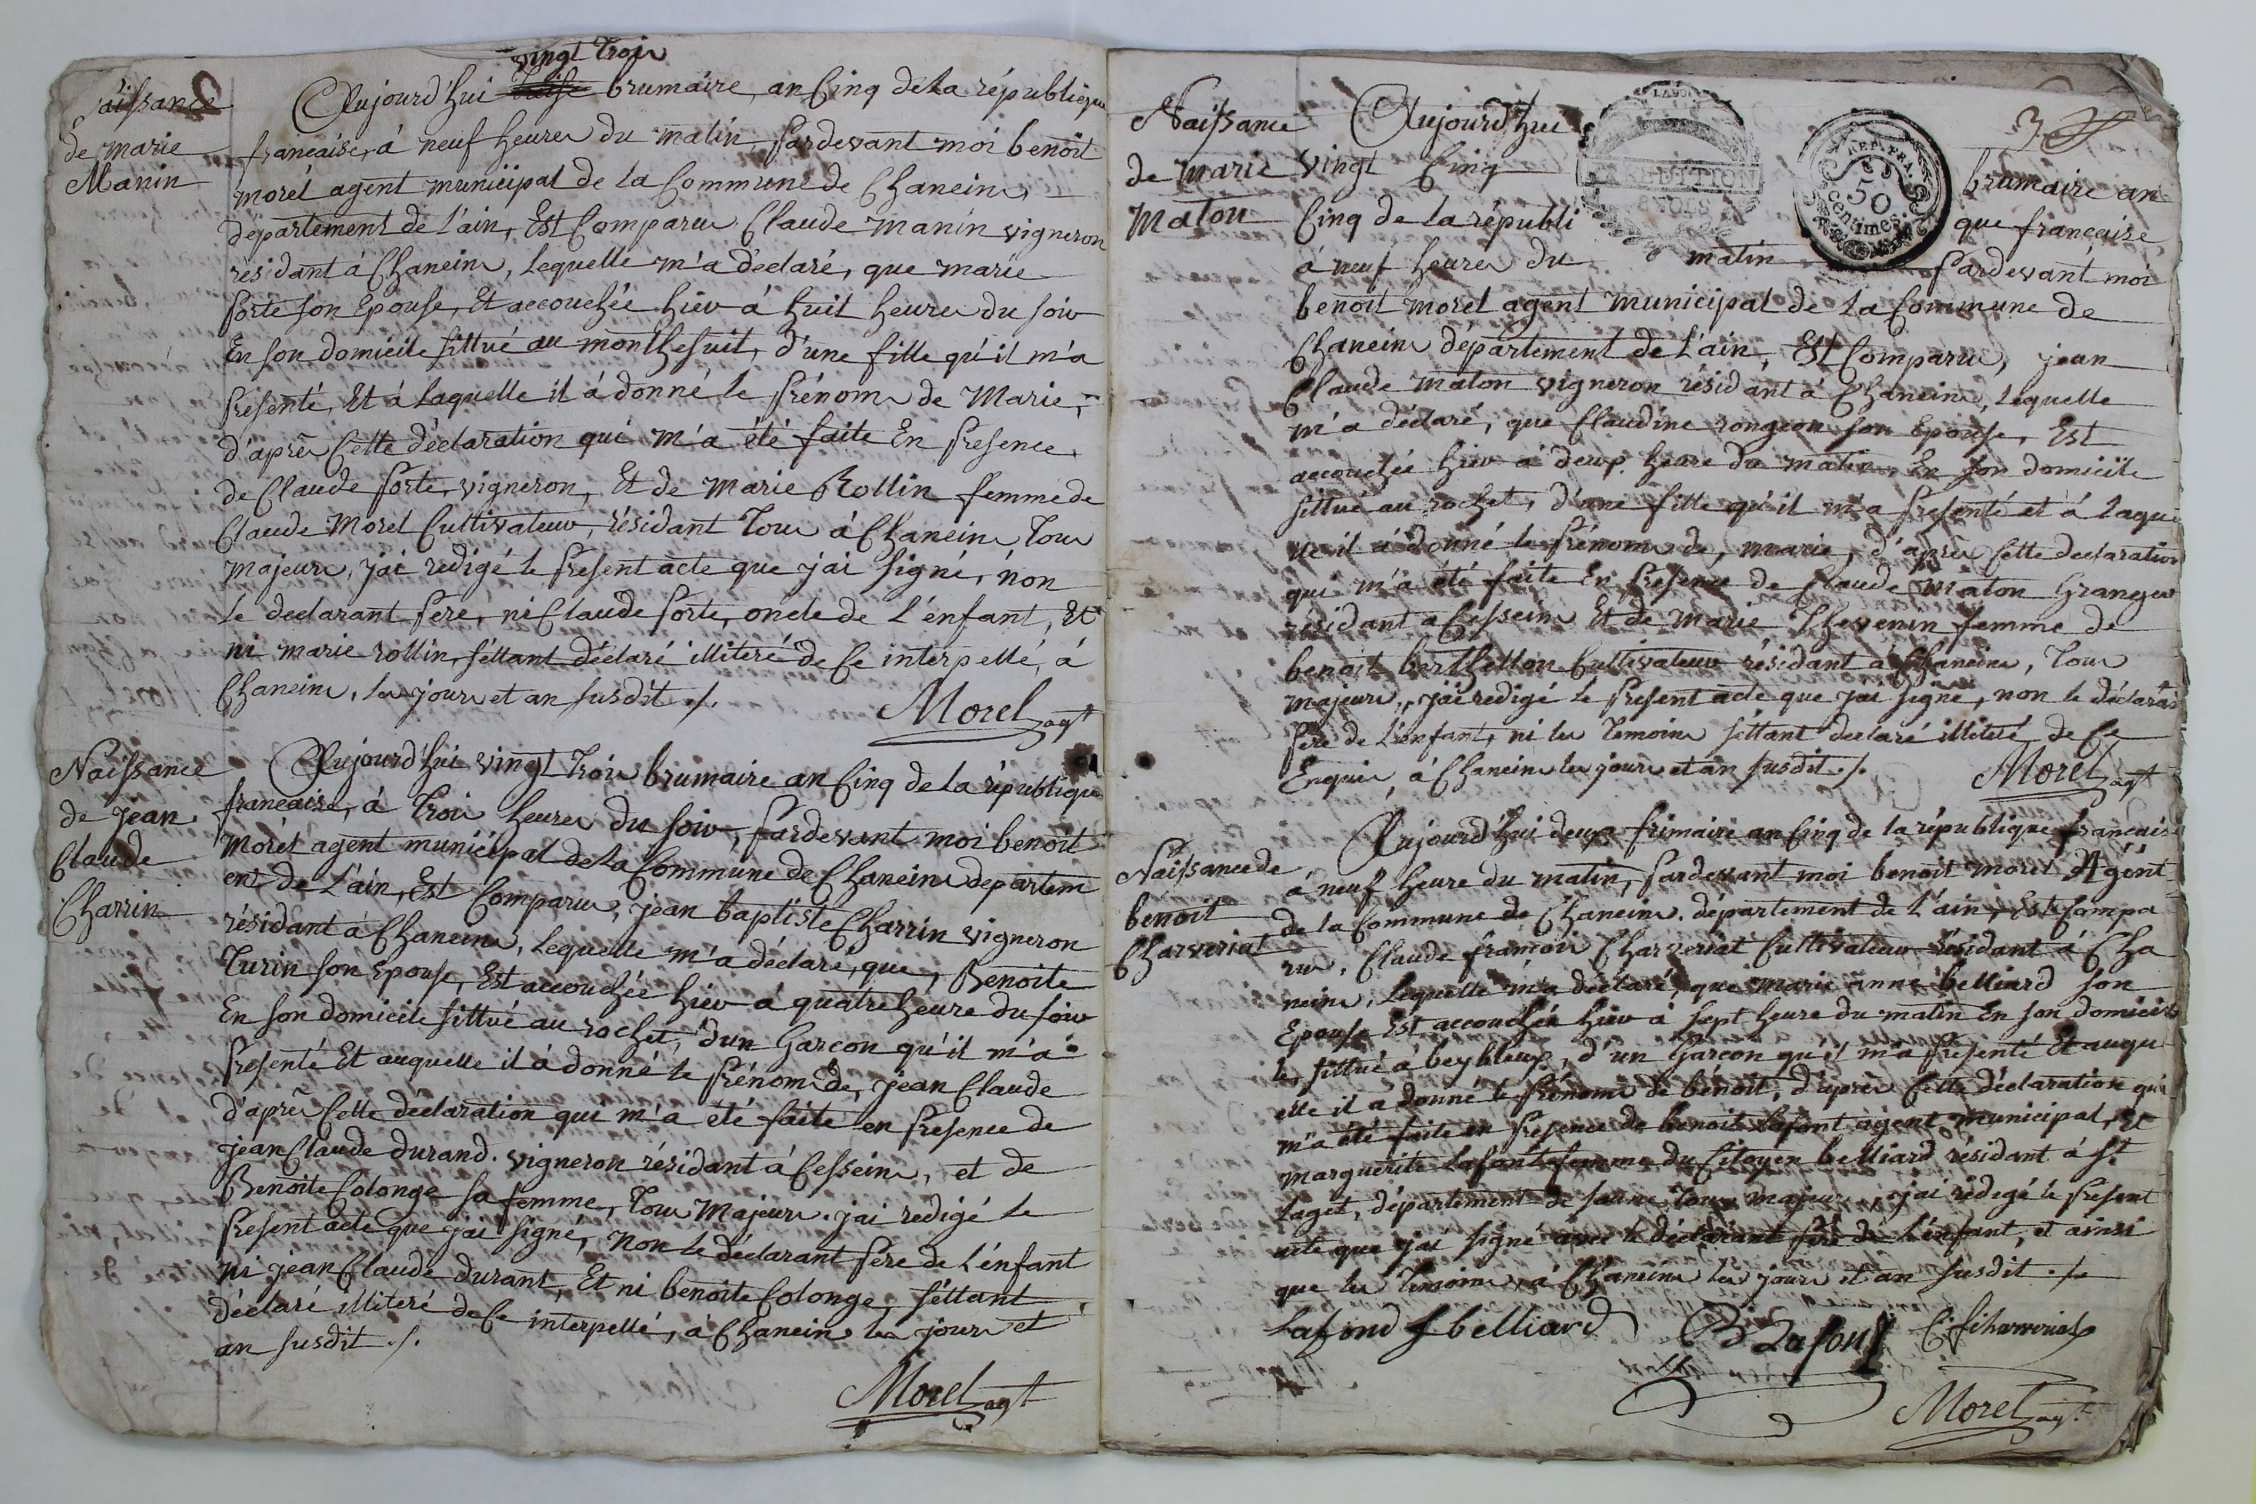 vingt trois
Naissance
de marie
Manin
Aujourd'hui treise brumaire, an Cinq de la république
francaise, à neuf heures du matin, pardevant moi benoit
morel agent municipal de la Commune de Chaneins,
département de l'ain, Est Comparu Claude manin vigneron
résidant à Chaneins, lequelle m'a déclaré, que marie
porte son Epouse, Et accouchée hier à huit heures du soir
En son domicile sittué au monthesuit, d'une fille qu'il m'a
presenté, Et à laquelle il à donné le prénoms de Marie,
d'après Cette déclaration qui m'a été faite En presence
de Claude porte, vigneron, Et de Marie Rollin femme de
Claude Morel Cultivateur, résidant Tous à Chaneins Tous
majeurs, j'ai redigé le present acte que j'ai signé, non
le declarant pere, ni Claude porte, oncle de l'enfant, Et
ni marie rollin, séttant déclaré illiteré de Ce interpellé, à
Chaneins, les jours et an susdit ./.
Morel agt
Naissance
de jean
Claude
Charrin
Aujourd'hui vingt trois brumaire an Cinq de la république
francaise, à Trois heures du soir, pardevant moi benoit
morel agent municipal de la Commune de Chaneins departem
ent de L'ain, Est Comparus, jean baptiste Charrin vigneron
résidant à Chaneins, lequelle m'a déclaré, que, Benoite
Turin son Epouse, Est accouchée hier à quatre heure du soir
En son domicile sittué au rochet, d'un Garcon qu'il m'a
presenté Et auquelle il à donné le prénoms de, jean Claude
d'après Cette déclaration qui m'a été faite en presence de
jean Claude durand. vigneron résidant à Cesseins, et de
Benoite Colonge sa femme, Tous Majeurs. j'ai redigé le
present acte que j'ai signé, non le déclarant pere de l'énfant
ni jean Claude durant, Et ni benoite Colonge, séttant
déclaré illiteré de Ce interpellé, à Chaneins les jours et
an susdit ./.
Morel agt
3
Naissance
de marie
Maton
REP. FRA.
50
centimes
Aujourd'hui
vingt Cinq brumaire an
Cinq de la républi que francaise
à neuf heures du matin pardevant moi
benoit morel agent municipal de la Commune de
Chaneins département de L'ain, Est Comparus, jean
Claude maton vigneron résidant à Chaneins, lequelle
m'a déclaré, que Claudine rongeon son Epouse, Est
accouchée hier à deux heure du matin En son domicile
sittué au rochet, d'une fille qu'il m'a presenté et à laque
lle il à donné le prénoms de, marie, d'après Cette declaration
qui m'a été faite En presence de Claude maton Granger
résidant à Cesseins Et de Marie Thevenin femme de
benoit berthellon Cultivateur résidant à Chaneins, Tous
majeurs, j'ai redigé le present acte que j'ai signé, non le déclarant
pere de l'enfant, ni les Temoins séttant declaré illiteré de Ce
Enquis, à Chaneins les jours et an susdit ./.
Morel agt
Naissance de
benoit
Charveriat
Aujourd'hui deux frimaire an Cinq de la république francaise
à neuf heure du matin, pardevant moi benoit morel Agént
de la Commune de Chaneins. département de l'ain, Est Compa
rus, Claude françois Charveriat Cultivateur résidant à Cha
neins, lequelle m'a déclaré, que marie anne belliard son
Epouse Est accouchée hier à sept heure du matin En son domici
le, sittué à beybleux, d'un Garcon qu'il m'a presenté Et auqu
elle il a donné le prénoms de bénoit, d'après Cette déclaration qui
m'a été faite en presence de benoit lafont agent municipal, Et
marguerite lafont femme du Citoyen belliard résidant à st
laget, département de saune Tous majeurs, j'ai redegé le present
acte que j'ai signé avec le déclarant pére de l'énfant, et ainsi
que les Temoins, à Chaneins les jours et an susdit ./.
Lafond f belliard B Lafont C. f charveriat
Morel agt